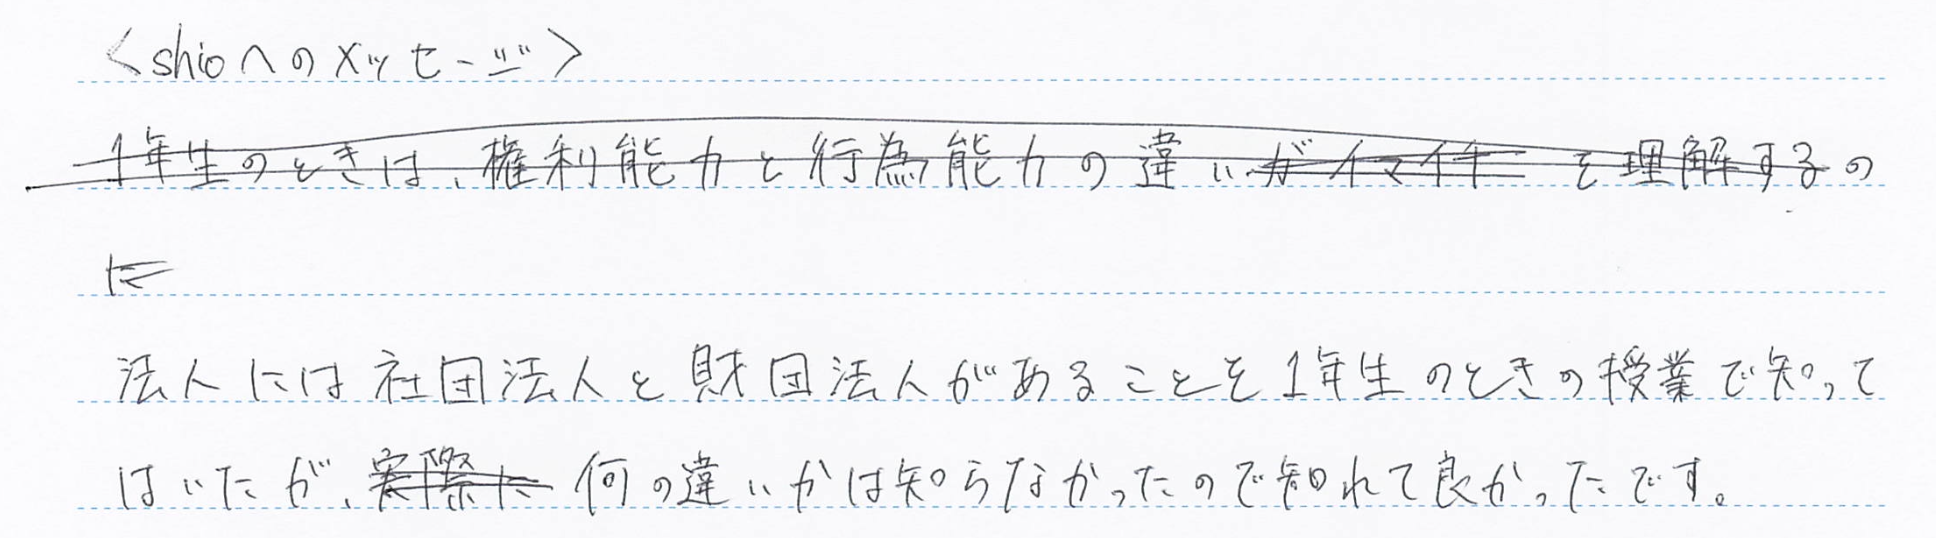 <shioへのメッセージ>
1年生のときは、権利能力と行為能力の違いがイマイチを理解するの
に
法人には社団法人と財団法人があることを1年生のときの授業で知って
はいたが、実際に何の違いかは知らなかったので知れて良かったです。